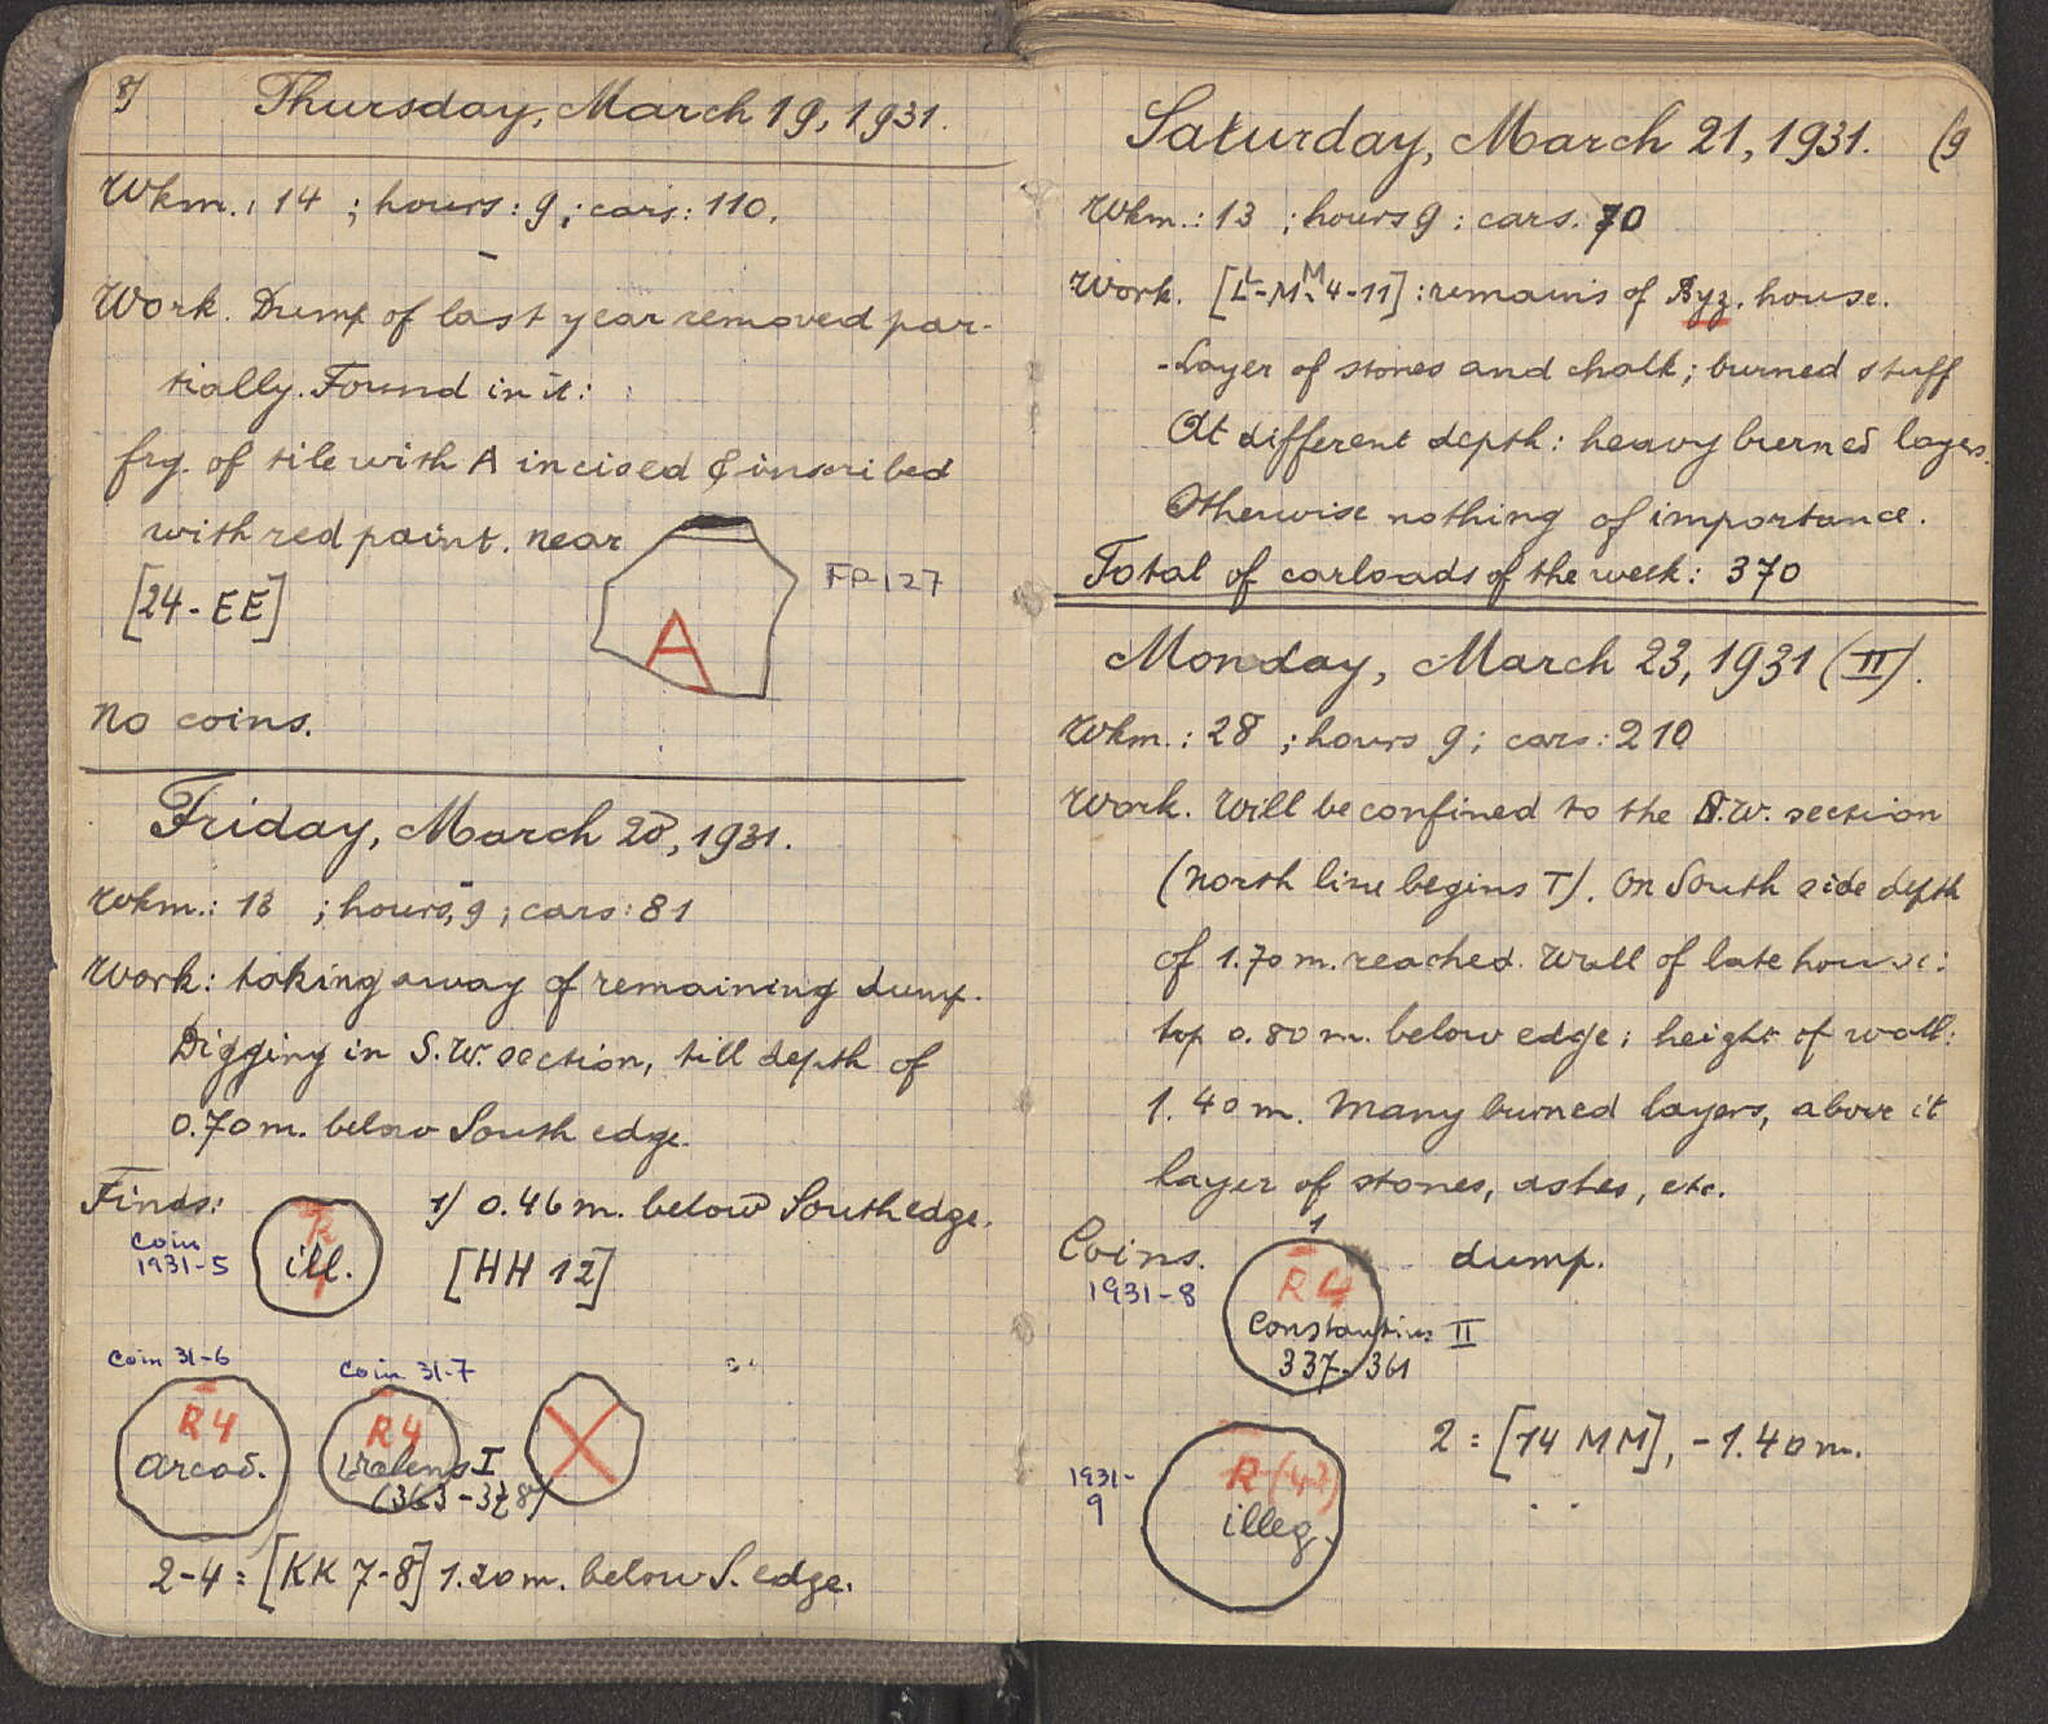 8)
Thursday, March 19, 1931.
Wkm.: 14 ; hours: 9; cars: 110.
Work. Dump of last year removed par-
tially. Found in it:
frg. of tile with A incised & inscribed
with red paint. near
[24-EE]
A
FP 127
No coins.
Friday, March 20, 1931.
Wkm.: 13 ; hours, 9; cars: 81
Work: taking away of remaining dump.
Digging in S.W. section, till depth of
0.70 m. below South edge.
Finds:
Coin
1931-5
ill.
1) 0.46 m. below South edge.
[HH 12]
Coin 31-6
R4
Arcad.
Coin 31-7
R4
Valens I
(363-378)
2-4 = [KK 7-8] 1.20 m. below S. edge.
(9
Saturday, March 21, 1931.
Wkm.: 13 ; hours 9: cars. 70
Work. [L-MM-4-11]: remains of Byz. house.
-Layer of stones and chalk; burned stuff
At different depth: heavy burned layers.
Otherwise nothing of importance.
Total of carloads of the week: 370
Monday, March 23, 1931 (II).
Wkm.: 28 ; hours 9; cars: 210
Work. Will be confined to the S.W. section
(North line begins T). On South side depth
of 1.70 m. reached. Wall of late house:
top 0.80 m. below edge; height of wall:
1.40 m. Many burned layers, above it
layer of stones, ashes, etc.
Coins.
1931-8
1
R4
Constantius II
337-361
dump.
1931-
9
R (4?)
illeg.
2 = [14 MM], -1.40 m.